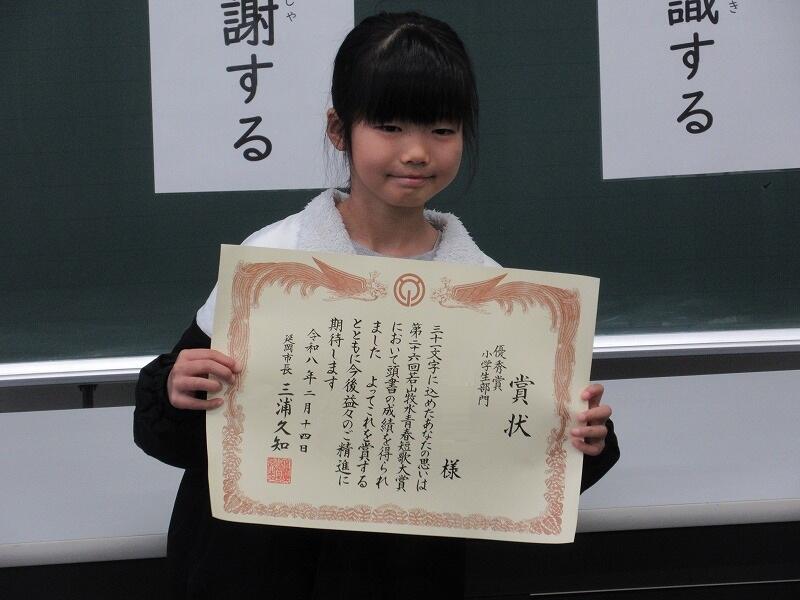 謝する
しゃ
識する
き
賞状
優秀賞
小学生部門
様
三十一文字に込めたあなたの思いは
第二十六回若山牧水青春短歌大賞
において頭書の成績を得られ
ました よってこれを賞する
とともに今後益々のご精進に
期待します
令和八年二月十四日
延岡市長 三浦久知